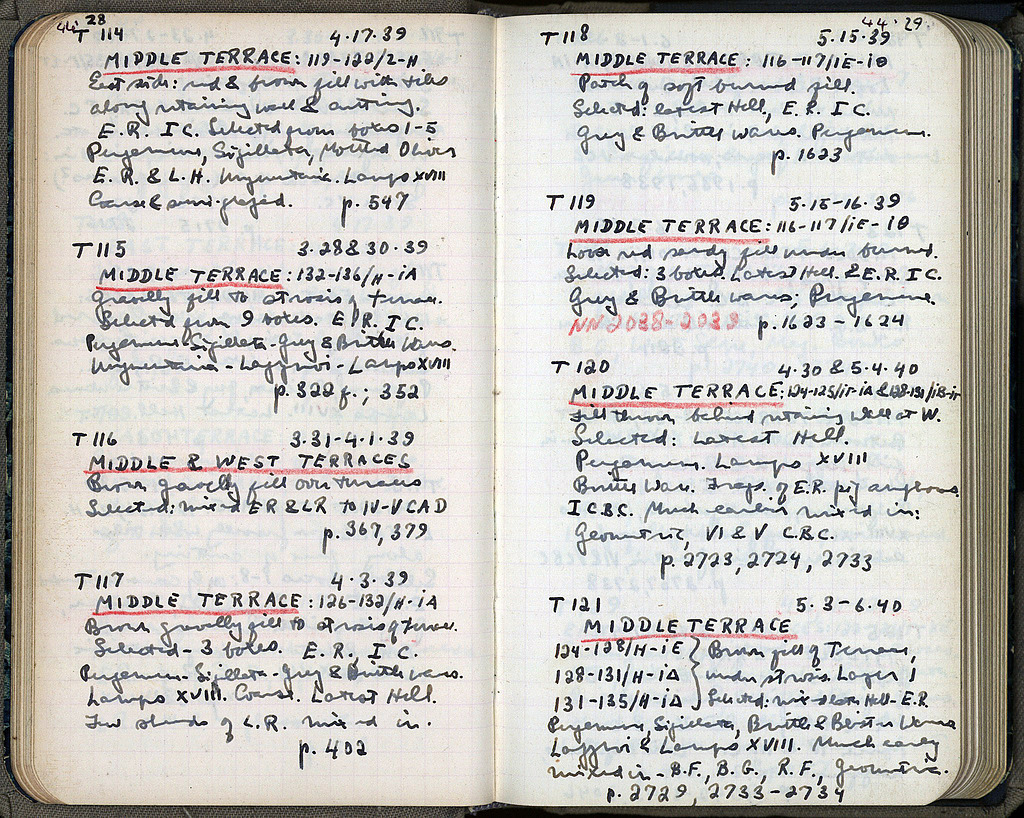 44. 28
T 114 4.17.39
MIDDLE TERRACE: 119-122/2-H
East side: red & brown fill with tiles
along retaining wall & cutting.
E.R. I C. Selected from boxes 1-5
Pergamene, Sigillata, Mottled Olives
E.R. & L.H. Unguentaria. Lamps XVIII
Coarse & semi-glazed. p. 547
T 115 3.28 & 30.39
MIDDLE TERRACE: 132-136/H-iA
Gravelly fill to strosis of terrace.
Selected from 9 boxes. E.R. I C.
Pergamene Sigillata - Grey & Brittle Wares.
Unguentaria - Lagynoi - Lamps XVIII
p. 322 f.; 352
T 116 3.31-4.1.39
MIDDLE & WEST TERRACES
Brown gravelly fill over terraces
Selected: mixed ER & LR to IV-V CAD
p. 367, 379
T 117 4.3.39
MIDDLE TERRACE: 126-132/H-iA
Brown gravelly fill to strosis of terrace.
Selected - 3 boxes. E.R. I C.
Pergamene - Sigillata - Grey & Brittle wares.
Lamps XVIII. Coarse. Latest Hell.
Few sherds of L.R. mixed in.
p. 402
44.29.
T 118 5.15.39
MIDDLE TERRACE: 116-117/iE-iθ
Patch of soft burned fill.
Selected: latest Hell, E.R. I C.
Grey & Brittle wares. Pergamene.
p. 1623
T 119 5.15-16.39
MIDDLE TERRACE: 116-117/iE-iθ
Loose red sandy fill under burned.
Selected: 3 boxes. Latest Hell. & E.R. I C.
Grey & Brittle wares; Pergamene.
NN 2038-2039 p. 1623-1624
T 120 4.30 & 5.4.40
MIDDLE TERRACE: 124-125/iΓ-iA & 128-131/iB-iΓ
Fill thrown behind retaining wall at W.
Selected: Latest Hell.
Pergamene. Lamps XVIII
Brittle Ware. Frags. of E.R. pg amphora.
I C BC. Much earlier mixed in:
Geometric, VI & V C.BC.
p. 2723, 2724, 2733
T 121 5.3-6.40
MIDDLE TERRACE
124-128/H-iE } Brown fill of Terrace,
128-131/H-iΔ } under strosis. Layer 1
131-135/H-iΔ } Selected: mixed late Hell-E.R
Pergamene, Sigillata, Brittle & Blister Wares
Lagynoi & Lamps XVIII. Much early
mixed in - B.F., B.G., R.F., geometric.
p. 2729, 2733-2734